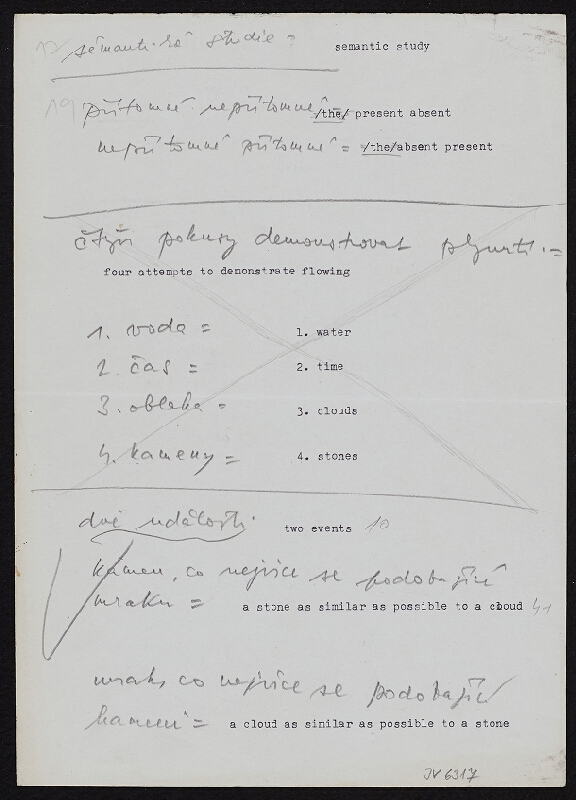 sémantická studie = semantic study
19 přítomné nepřítomné = /the/ present absent
nepřítomné přítomné = /the/absent present
čtyři pokusy demonstrovat plynutí =
four attempts to demonstrate flowing
1. voda = 1. water
2. čas = 2. time
3. oblaka = 3. clouds
4. kameny = 4. stones
dvě události two events 10
kámen, co nejvíce se podobající
mraku = a stone as similar as possible to a cloud
mrak, co nejvíce se podobající
kameni = a cloud as sinilar as possible to a stone
JV 6317